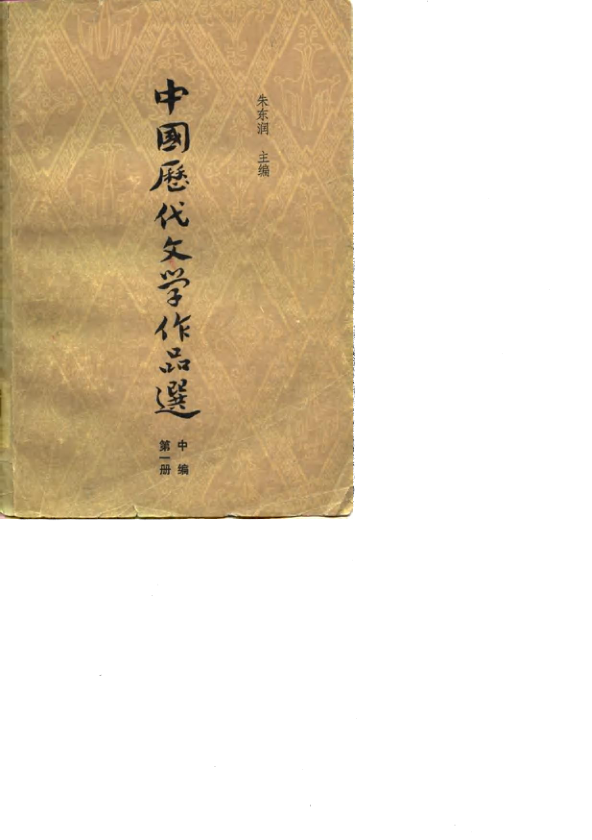 朱东润 主编
中國歷代文学作品選
中编
第一册